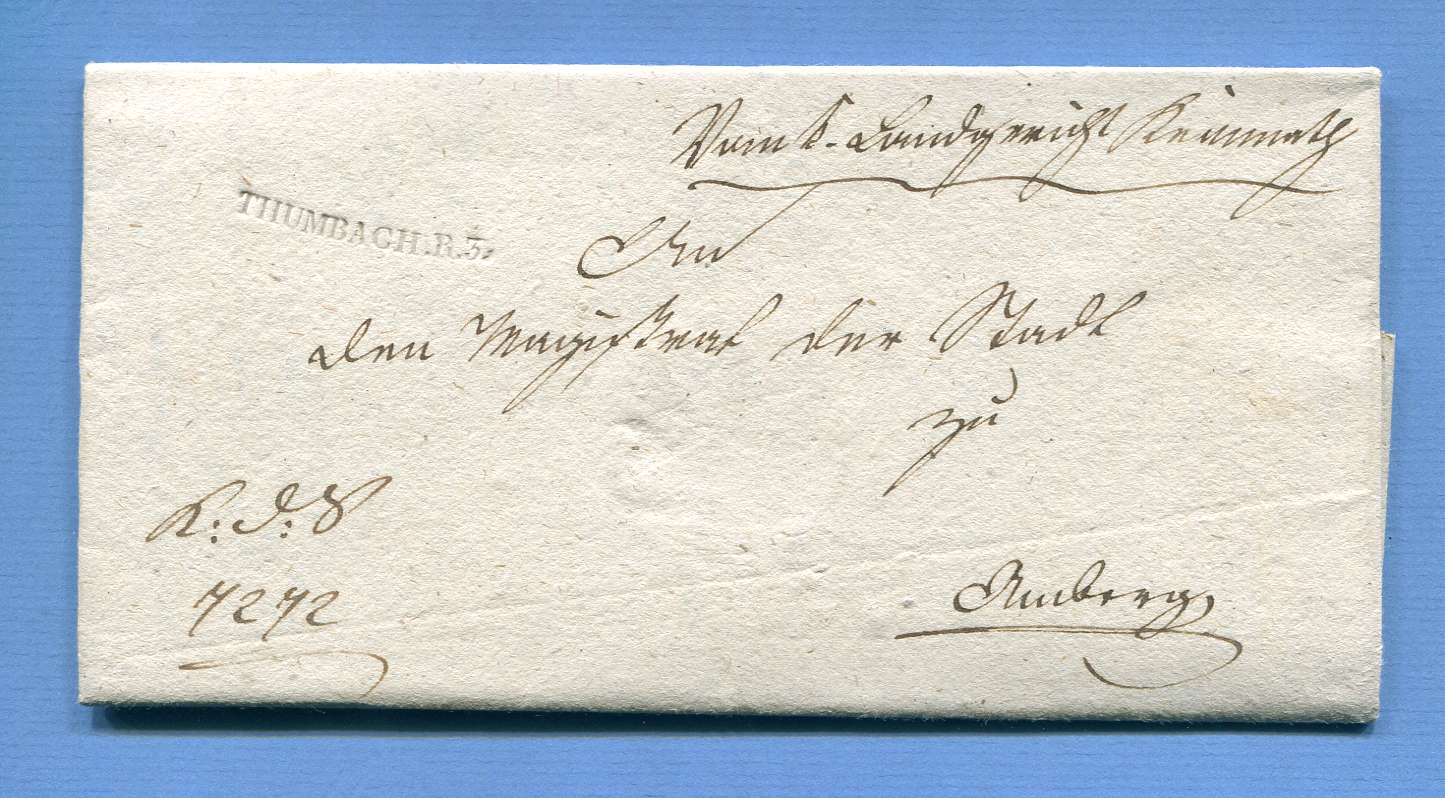 Vom k. Landgericht Kemnath
THUMBACH.R.3.
An
den Magistrat der Stadt
zu
K: d: S
7272
Amberg.